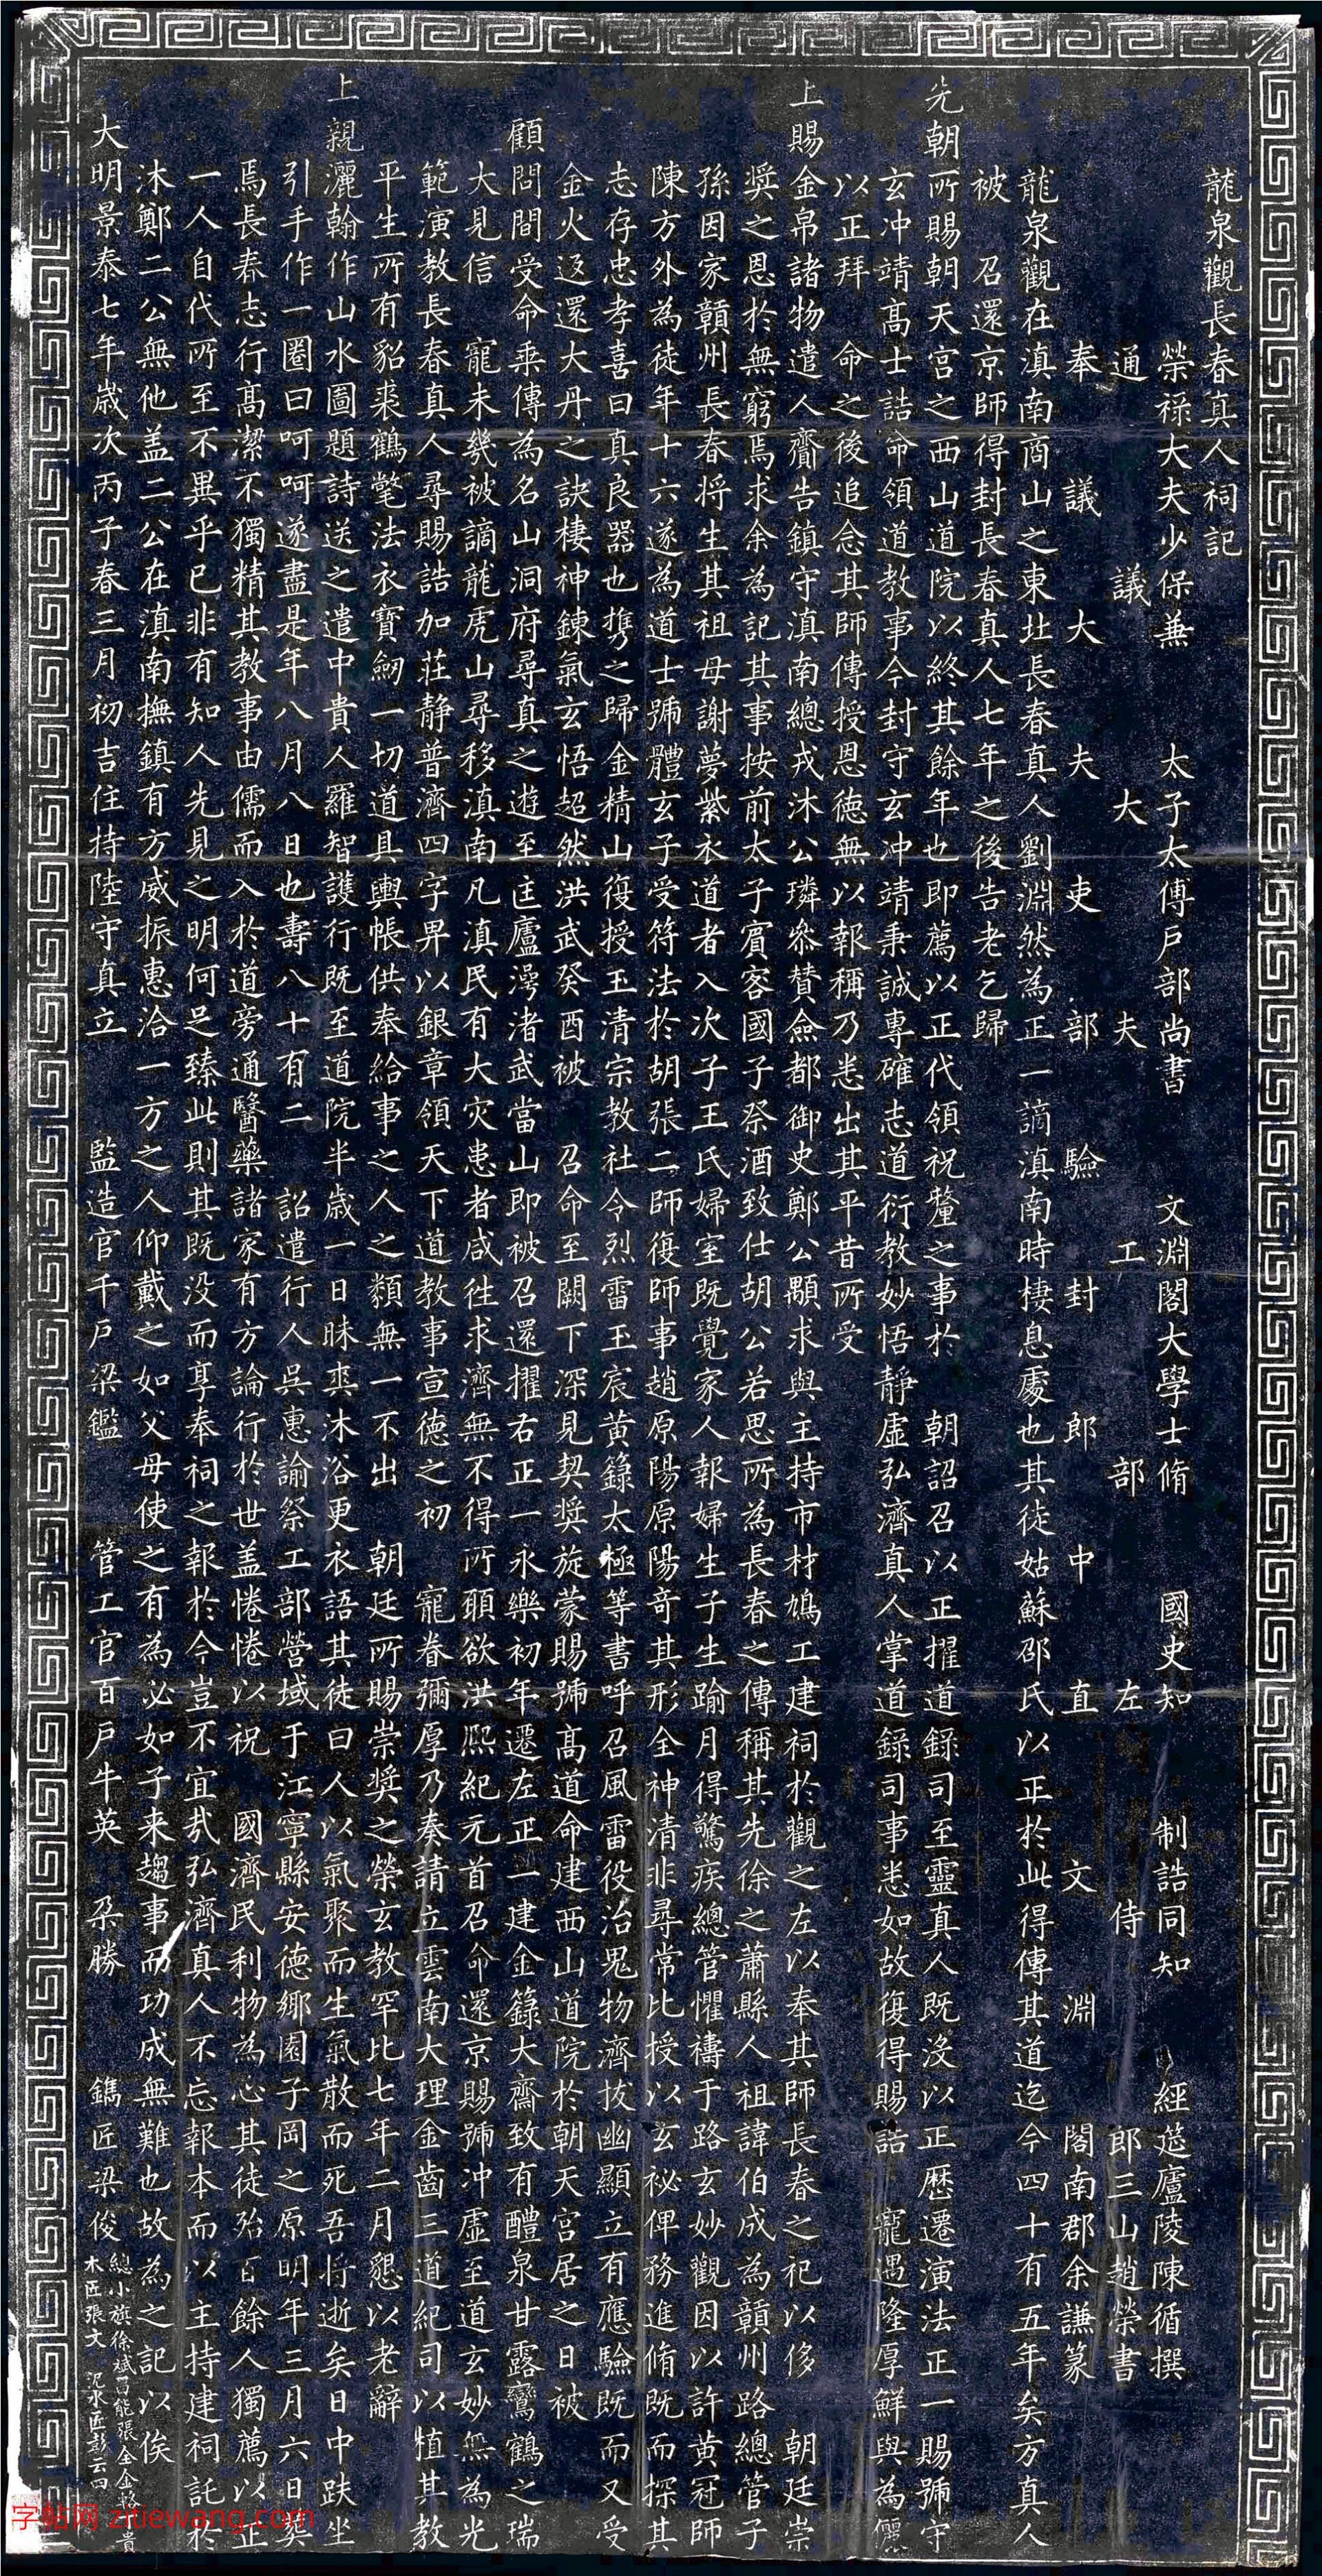 龍泉觀長春真人祠記
榮祿大夫少保兼 太子太傅戶部尚書 文淵閣大學士脩 國史知 制誥同知 經筵廬陵陳循撰
通議大夫工部左侍郎三山趙榮書
奉議大夫吏部驗封郎中直文淵閣南郡余謙篆
龍泉觀在滇南商山之東北長春真人劉淵然為正一謫滇南時棲息處也其徒姑蘇邵氏以正於此得傳其道迄今四十有五年矣方真人
被 召還京師得封長春真人七年之後告老乞歸
先朝所賜朝天宮之西山道院以終其餘年也即薦以正代領祝釐之事於 朝詔召以正擢道錄司至靈真人既沒以正歷遷演法正一賜號守
玄冲靖高士誥命領道教事今封守玄冲靖秉誠專確志道衍教妙悟靜虛弘濟真人掌道錄司事悉如故復得賜誥 寵遇隆厚鮮與為儷
以正拜 命之後追念其師傳授恩德無以報稱乃悉出其平昔所受
上賜金帛諸物遣人齎告鎮守滇南總戎沐公璘叅贊僉都御史鄭公顒求與主持市材鳩工建祠於觀之左以奉其師長春之祀以侈 朝廷崇
獎之恩於無窮焉求余為記其事按前太子賓客國子祭酒致仕胡公若思所為長春之傳稱其先徐之蕭縣人祖諱伯成為贛州路總管子
孫因家贛州長春将生其祖母謝夢紫衣道者入次子王氏婦室既覺家人報婦生子生踰月得驚疾總管懼禱于路玄妙觀因以許黃冠師
陳方外為徒年十六遂為道士號體玄子受符法於胡張二師復師事趙原陽原陽奇其形全神清非尋常比授以玄祕俾務進脩既而探其
志存忠孝喜曰真良器也携之歸金精山復授玉清宗教社令烈雷玉宸黃籙太極等書呼召風雷役治鬼物濟拔幽顯立有應驗既而又受
金火返還大丹之訣棲神鍊氣玄悟超然洪武癸酉被 召命至闕下深見契獎旋蒙賜號高道命建西山道院於朝天宮居之日被
顧問間受命乘傳為名山洞府尋真之遊至匡廬灣渚武當山即被召還擢右正一永樂初年遷左正一建金籙大齋致有醴泉甘露鸞鶴之瑞
大見信 寵未幾被謫龍虎山尋移滇南凡滇民有大灾患者咸徃求濟無不得所願欲洪熙紀元首召命還京賜號冲虛至道玄妙無為光
範演教長春真人尋賜誥加莊静普濟四字畀以銀章領天下道教事宣德之初 寵眷彌厚乃奏請立雲南大理金齒三道紀司以植其教
平生所有貂裘鶴氅法衣寶劒一切道具輿帳供奉給事之人之類無一不出 朝廷所賜崇獎之榮玄教罕比七年二月懇以老辭
上親灑翰作山水圖題詩送之遣中貴人羅智護行既至道院半歲一日昧爽沐浴更衣語其徒曰人以氣聚而生氣散而死吾将逝矣日中趺坐
引手作一圈曰呵呵遂盡是年八月八日也壽八十有二 詔遣行人吳惠諭祭工部營域于江寧縣安德鄉園子岡之原明年三月六日葬
焉長春志行高潔不獨精其教事由儒而入於道旁通醫藥諸家有方論行於世盖惓惓以祝 國濟民利物為心其徒殆百餘人獨薦以正
一人自代所至不異乎已非有知人先見之明何足臻此則其既没而享奉祠之報於今豈不宜㢤弘濟真人不忘報本而以主持建祠託於
沐鄭二公無他盖二公在滇南撫鎮有方威振惠洽一方之人仰戴之如父母使之有為必如子来趨事而功成無難也故為之記以俟
大明景泰七年歲次丙子春三月初吉住持陸守真立 監造官千戶梁鑑 管工官百戶牛英 朶勝 鐫匠梁俊
總小旗徐斌昌能張金金
木匠張文 泥水匠彭云四
字帖网 zitiewang.com